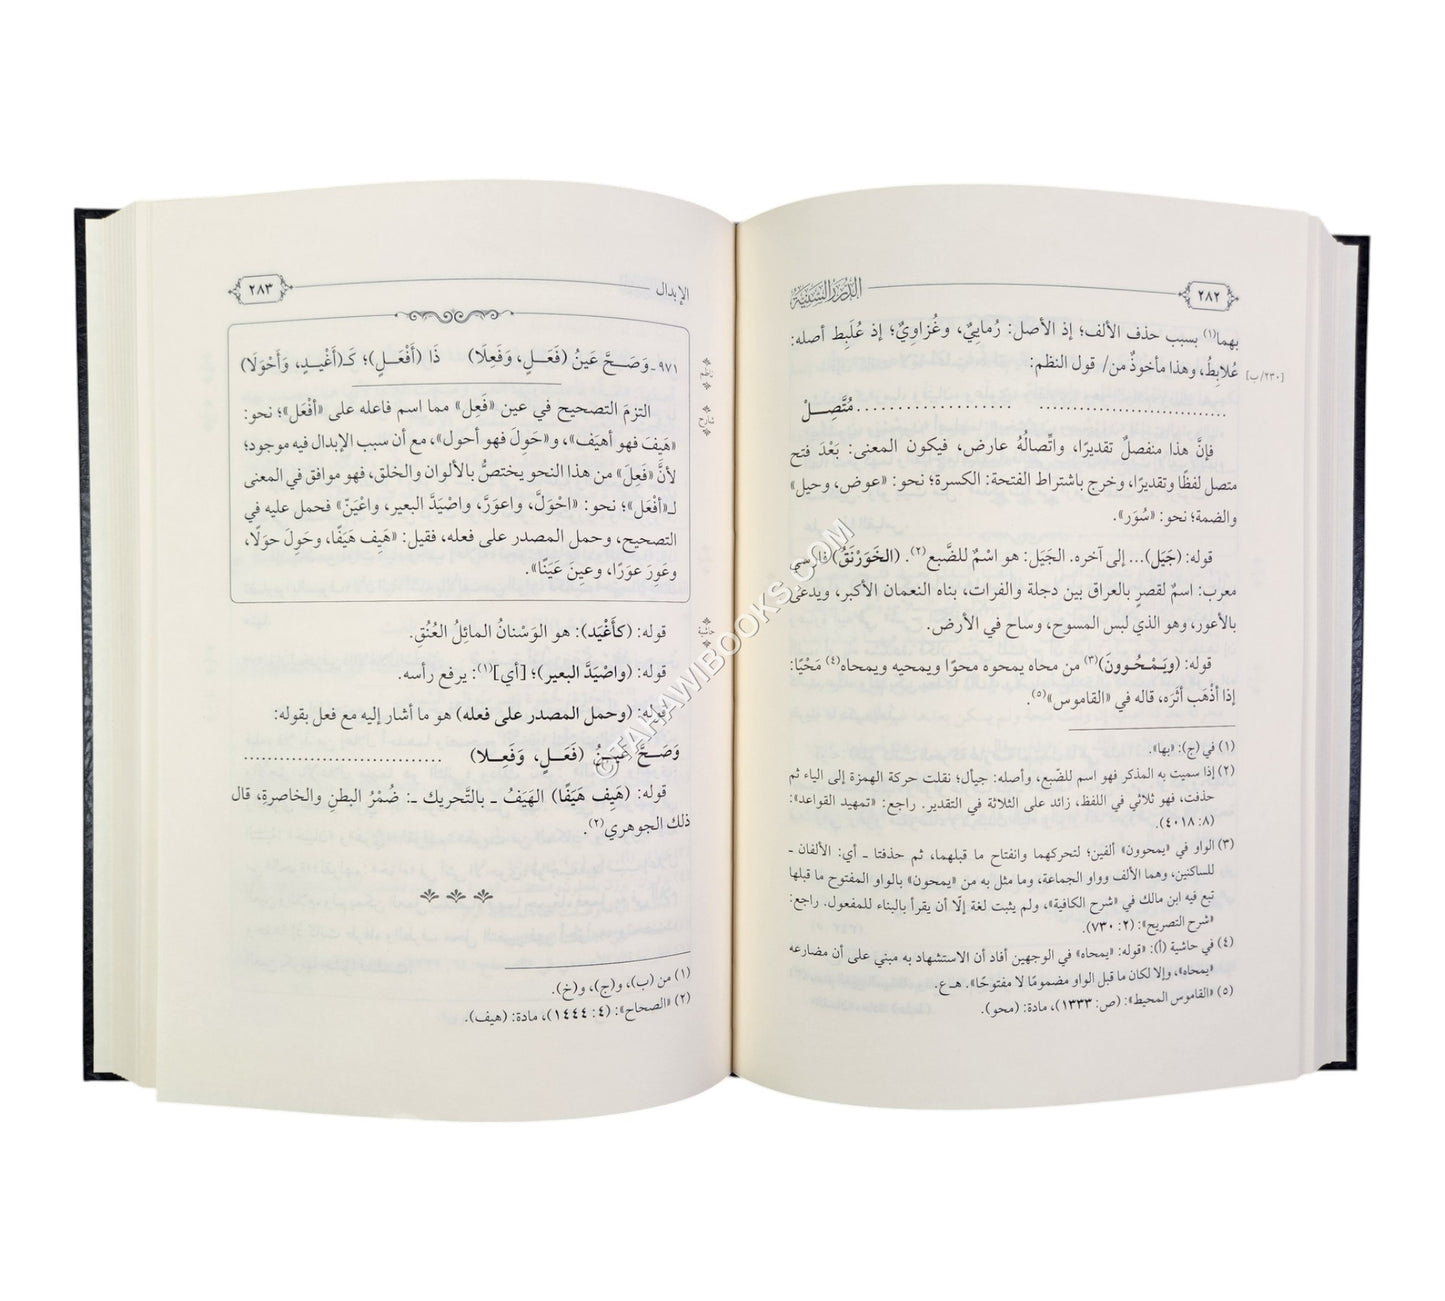 ٢٨٢
الدرر السنية
بهما(١) بسبب حذف الألف؛ إذ الأصل: رُمايِيٌ، وغُزاوِيٌ؛ إذ عُلَبِط أصله:
عُلابِطُ، وهذا مأخوذٌ من/ قول النظم:
[٢٣٠/ب]
............................ ............................ مُتَّصِلْ
فإنَّ هذا منفصلٌ تقديرًا، واتّصالُهُ عارض، فيكون المعنى: بَعْدَ فتح
متصل لفظًا وتقديرًا، وخرج باشتراط الفتحة: الكسرة؛ نحو: «عوض، وحيل»
والضمة؛ نحو: «سُوَر».
قوله: (جَيَل)... إلى آخره. الجَيَل: هو اسْمٌ للضَّبع(٢). (الخَوَرْنَقُ) فارسي
معرب: اسمٌ لقصرٍ بالعراق بين دجلة والفرات، بناه النعمان الأكبر، ويدعى
بالأعور، وهو الذي لبس المسوح، وساح في الأرض.
قوله: (ويَمْحُوونَ)(٣) من محاه يمحوه محوًا ويمحيه ويمحاه(٤) مَحْيًا:
إذا أذْهَب أثَرَه، قاله في «القاموس»(٥).
(١) في (ج): «بها».
(٢) إذا سميت به المذكر فهو اسم للضّبع، وأصله: جيأل؛ نقلت حركة الهمزة إلى الياء ثم
حذفت، فهو ثلاثي في اللفظ، زائد على الثلاثة في التقدير. راجع: «تمهيد القواعد»:
(٨: ٤٠١٨).
(٣) الواو في «يمحوون» ألفين؛ لتحركهما وانفتاح ما قبلهما، ثم حذفتا ـ أي: الألفان ـ
للساكنين، وهما الألف وواو الجماعة، وما مثل به من «يمحون» بالواو المفتوح ما قبلها
تبع فيه ابن مالك في «شرح الكافية»، ولم يثبت لغة إلّا أن يقرأ بالبناء للمفعول. راجع:
«شرح التصريح»: (٢: ٧٣٠).
(٤) في حاشية (أ): «قوله: يمحاه» في الوجهين أفاد أن الاستشهاد به مبني على أن مضارعه
«يمحاه»، وإلا لكان ما قبل الواو مضمومًا لا مفتوحًا». هـ.ع.
(٥) «القاموس المحيط»: (ص: ١٣٣٣)، مادة: (محو).
الإبدال
٢٨٣
ناظم
٩٧١ـ وَصَحَّ عَينُ (فَعَلٍ، وَفَعِلَا) ذَا (أَفْعَلٍ)؛ كَـ(أَغْيدٍ، وَأَحْوَلَا)
شارح
التزمَ التصحيح في عين «فَعِل» مما اسم فاعله على «أفْعَل»؛ نحو:
«هَيِفَ فهو أهيَف»، و«حَوِلَ فهو أحول»، مع أن سبب الإبدال فيه موجود؛
لأنَّ «فَعِلَ» من هذا النحو يختصُّ بالألوان والخلق، فهو موافق في المعنى
لـ«أفْعَل»؛ نحو: «احْوَلَّ، واعوَرَّ، واصْيَدَّ البعير، واعْيَنّ» فحمل عليه في
التصحيح، وحمل المصدر على فعله، فقيل: «هَيِف هَيَفًا، وحَوِلَ حوَلًا،
وعَوِرَ عوَرًا، وعينَ عَيَنًا».
حاشية
قوله: (كأَغْيَد): هو الوَسْنانُ المائِلُ العُنُقِ.
قوله: (واصْيَدَّ البعير)؛ [أي](١): يرفع رأسه.
قوله: (وحمل المصدر على فعله) هو ما أشار إليه مع فعل بقوله:
وَصَحَّ عَيـنُ (فَعَلٍ، وَفَعِلا) ............................
قوله: (هَيِف هَيَفًا) الهَيَفُ ـ بالتَّحريك ـ: ضُمْرُ البطن والخاصرة، قال
ذلك الجوهري(٢).
(١) من (ب)، و(ج)، و(خ).
(٢) «الصحاح»: (٤: ١٤٤٤)، مادة: (هيف).
©TAHAWIBOOKS.COM